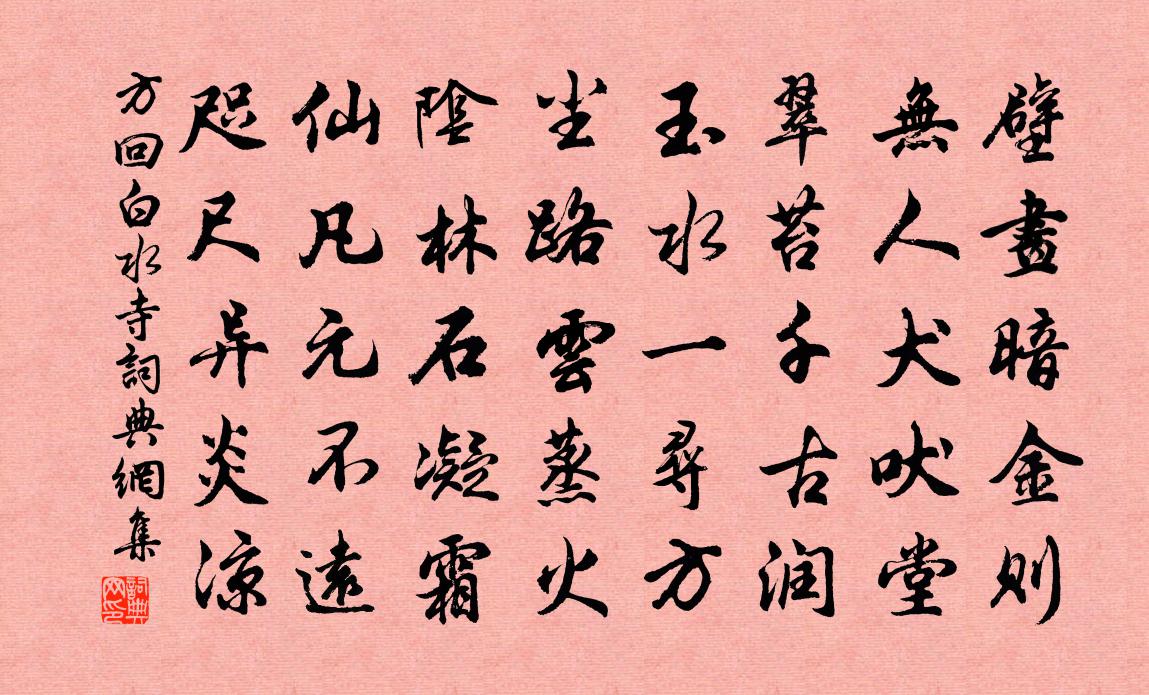 壁畫暗金则
無人犬吠堂
翠苔千古润
玉水一尋方
尘路雲蒸火
陰林石凝霜
仙凡元不遠
咫尺异炎涼
方回白水寺詞典網集
詞典网印